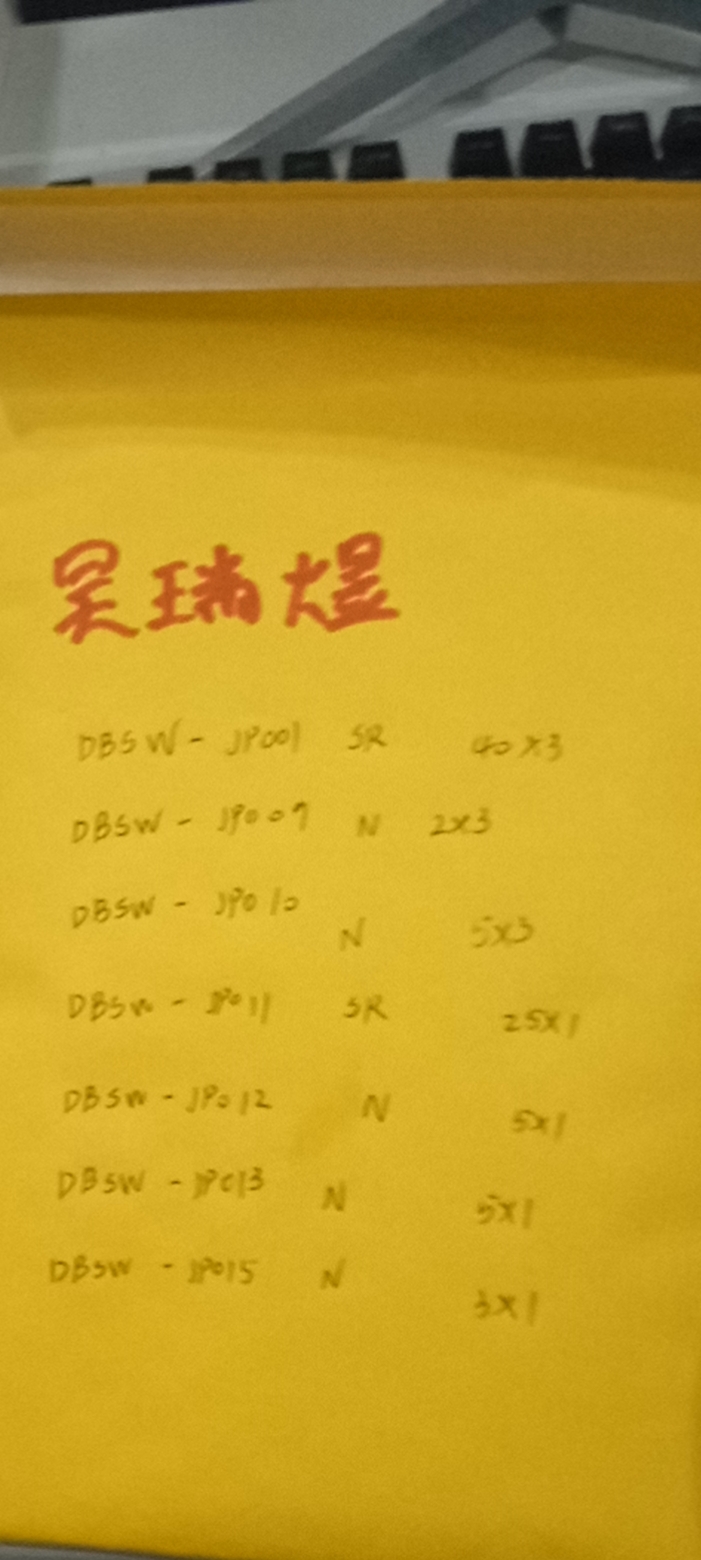 吴瑞煜
DBSW - JP001 SR 40x3
DBSW - JP009 N 2x3
DBSW - JP010 N 5x3
DBSW - JP011 SR 25x1
DBSW - JP012 N 5x1
DBSW - JP013 N 5x1
DBSW - JP015 N 3x1